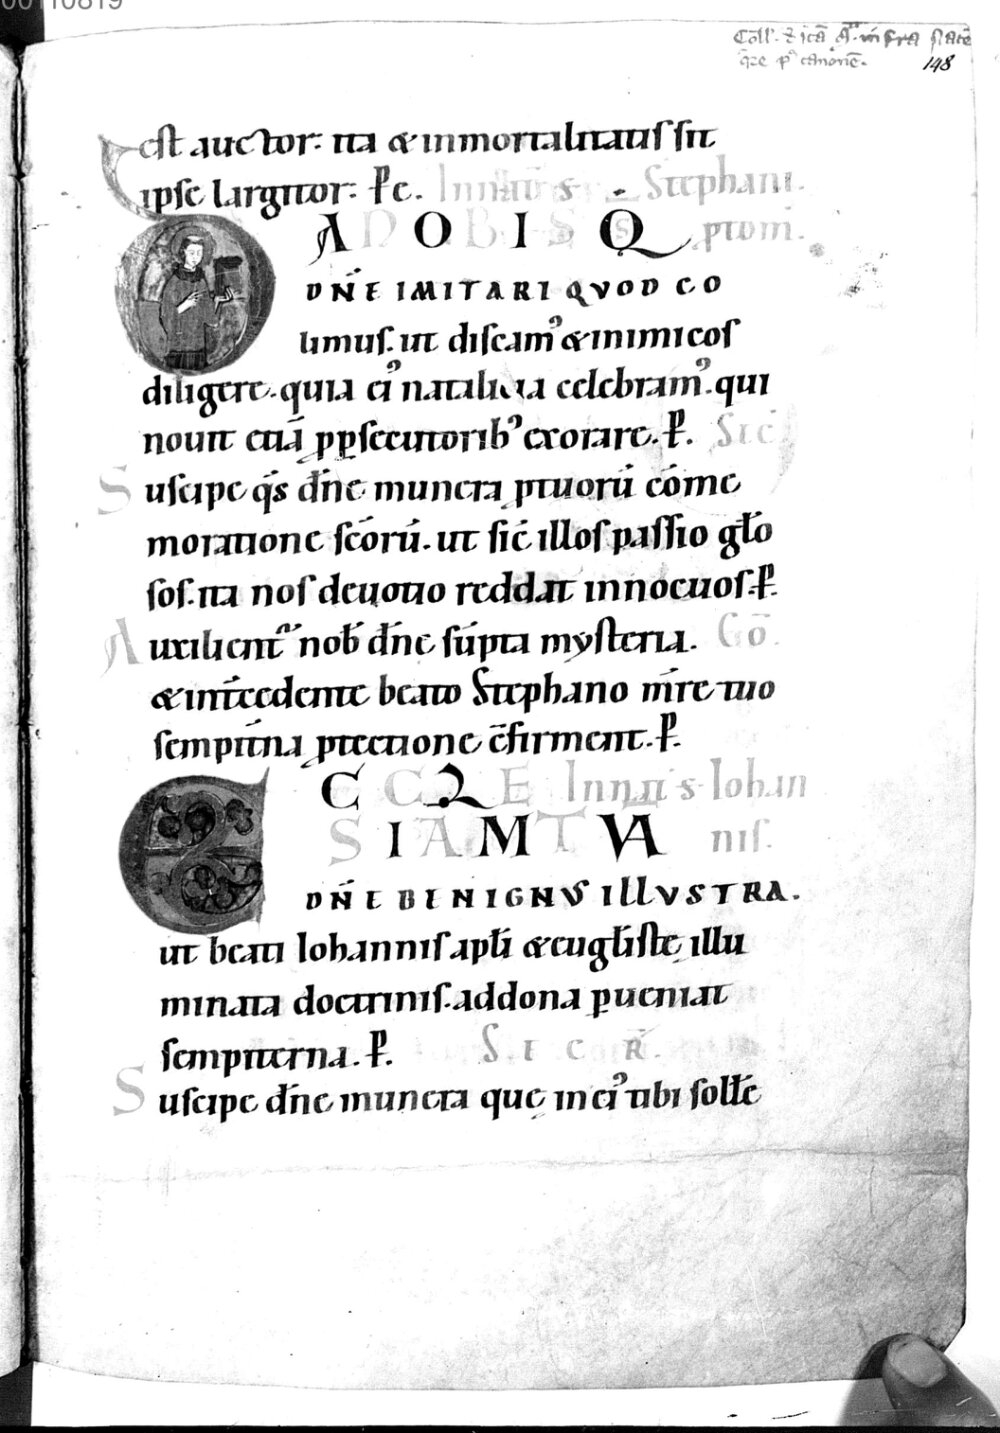 00110819
148
est auctor: ita & inmortalitatis sit
ipse largitor: P̄e. In nat̄ S. Stephani.
DA NOBIS Q̄S ptom̄.
DN̄E IMITARI QVOD CO
limus. ut discam᾿ & inimicos
diligere. quia ei᾿ natalicia celebram᾿. qui
nouit etiā p̱psecutorib᾿ exorare. P̄. Sec̄
Suscipe q̄s dn̄e munera ptuorū cōme
moratione sc̄orū. ut sic̄ illos passio gl̄o
sos. ita nos deuotio reddat innocuos. P̄.
Auxilient᾿ nob̄ dn̄e sūpta mysteria. Cō.
& int̄cedente beato Stephano m̄re tuo
sempit̄na ptectione c̄firment. P̄.
ECCLE In nat̄ S. Iohan
SIAM TVA nis.
DN̄E BENIGNVS ILLVSTRA.
ut beati Iohannis apl̄i & eugl̄iste illu
minata doctrinis. ad dona pueniat
sempiterna. P̄. SECR̄.
Suscipe dn̄e munera que in ei᾿ tibi soll̄e